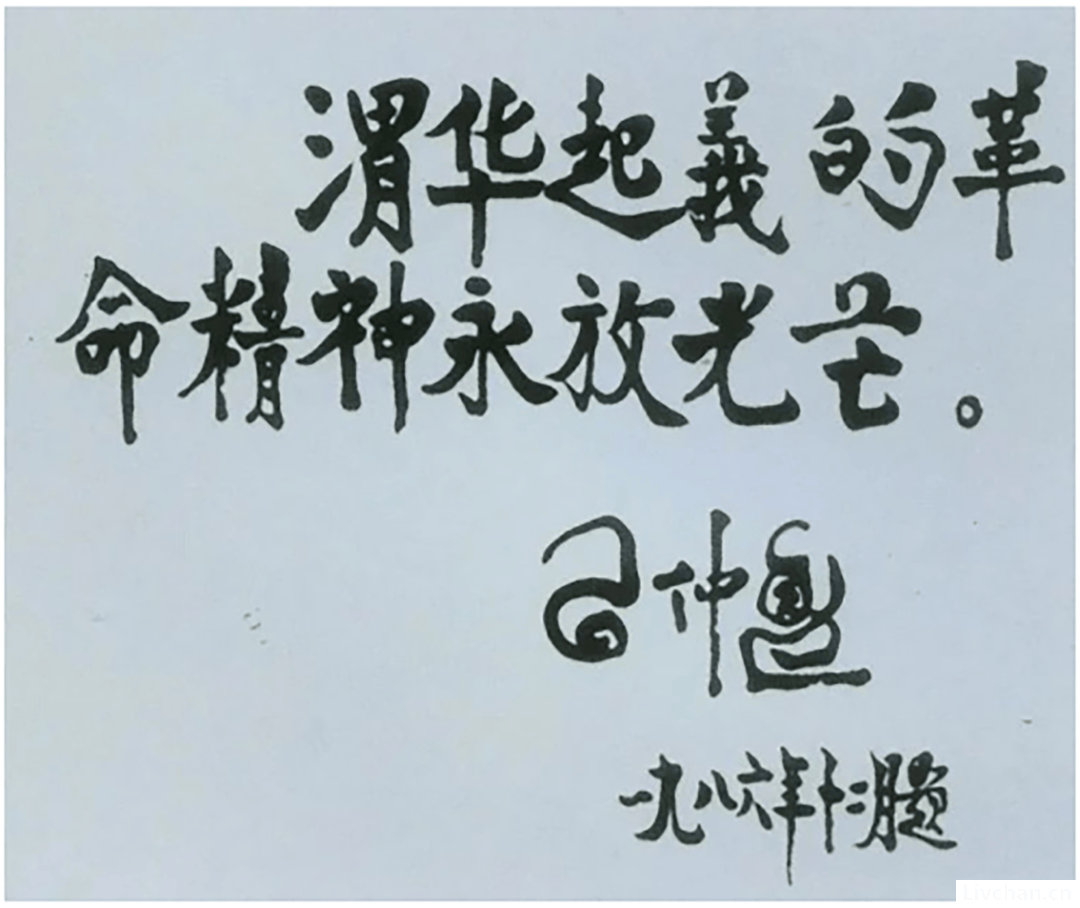 渭华起義的革
命精神永放光芒。
习仲勋
一九八六年十二月題
Livchan.cn